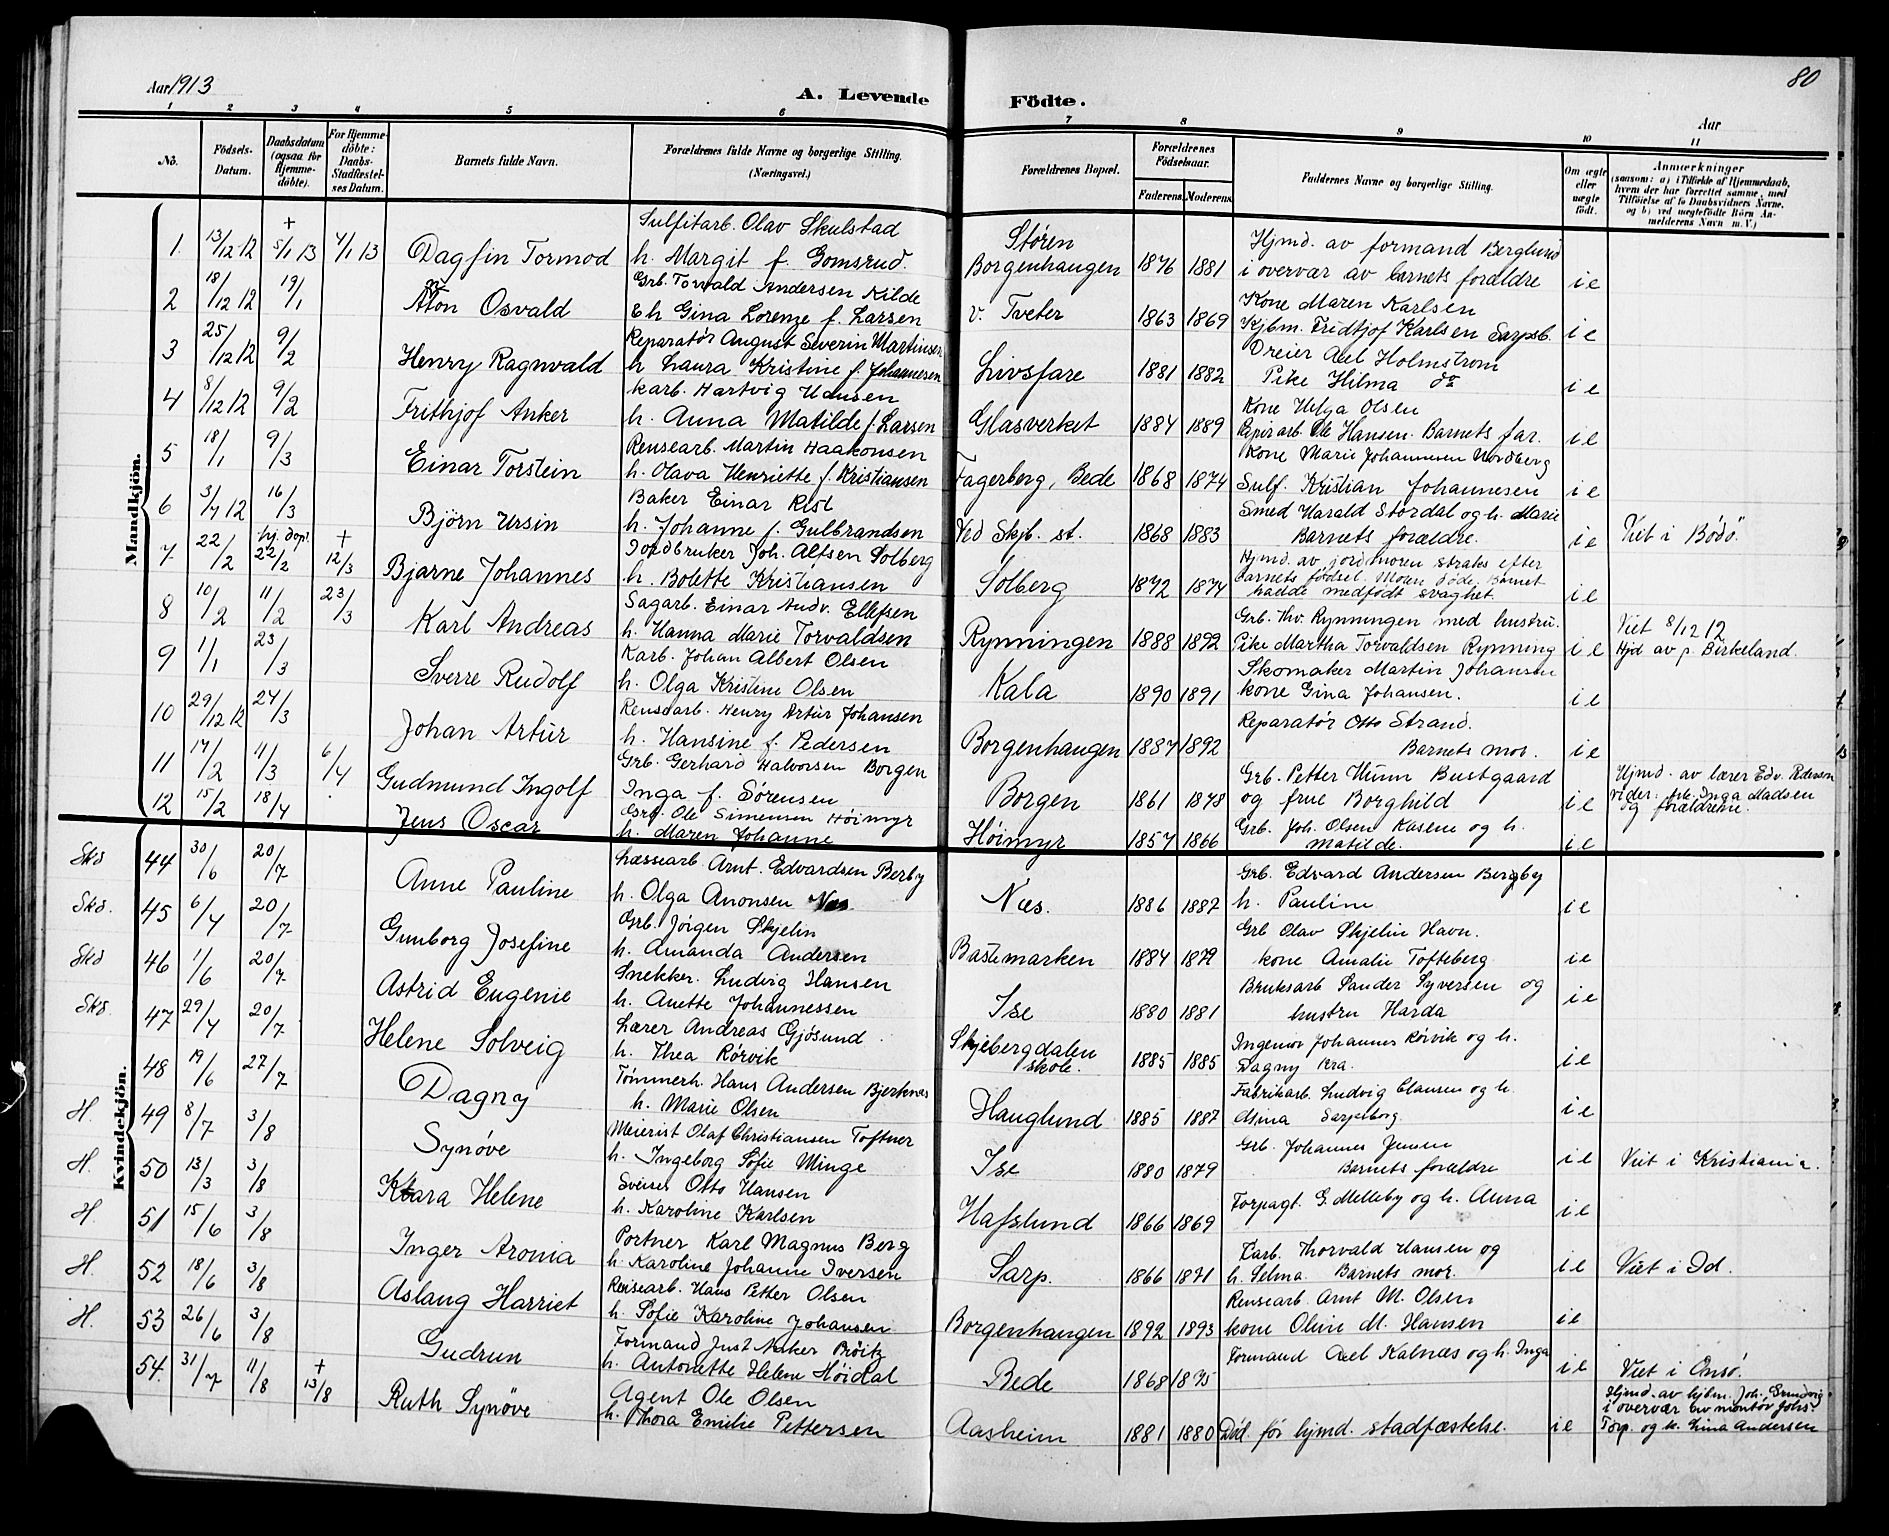 Aar 1913
A. Levende Födte.
80
Aar
1 2 3 4 5 6 7 8 9 10 11
No.
Födsels-Datum.
Daabsdatum (ogsaa for Hjemme-döbte).
For Hjemme-döbte: Daabs-Stadfæstel-ses Datum.
Barnets fulde Navn.
Forældrenes fulde Navne og borgerlige Stilling. (Næringsvei.)
Forældrenes Bopæl.
Forældrenes Födselsaar.
Faderens. Moderens.
Faddernes Navne og borgerlige Stilling.
Om ægte eller uægte födt.
Anmærkninger
(saasom: a) i Tilfælde af Hjemmedaab, hvem der har forrettet samme, med Tilföielse af to Daabsvidners Navne, og b) ved uegtefödte Börn An-melderens Navn m. V.)
Mandkjön.
1 13/12 12 + 5/1 13 7/1 13 Dagfin Tormod
Sulfitarb. Olav Skulstad
h. Margit f. Gomsrud.
Støren Borgenhaugen 1876 1881
Hjmd. av formand Berglund
i overvær av barnets forældre ie
2 18/12 12 19/1 Aton Osvald
Grb. Torvald Andersen Kilde
Eh Gina Lorenze f. Larsen
v. Tveter 1863 1869
Kone Maren Karlsen
Kjbm. Fridtjof Karlsen Sarpsb. ie
3 25/12 12 9/2 Henry Ragnvald
Reparatør August Severin Martinsen
h Laura Kristine f. Johannesen
Livsfare 1881 1882
Dreier Axel Holmstrøm
Pike Hilma do ie
4 8/12 12 9/2 Frithjof Anker
Karb. Hartvig Hansen
h. Anna Matilde f. Larsen
Glasverket 1884 1889
Kone Helga Olsen
Papirarb. Ole Hansen. Barnets far. ie
5 18/1 9/3 Einar Torstein
Rensearb. Martin Haakonsen
h. Olava Henriette f. Kristiansen
Fagerberg, Bede 1868 1874
Kone Marie Johannesen Nordberg
Sulf. Kristian Johannesen ie
6 3/7 12 16/3 Bjørn Ursin
Baker Einar Rist
h. Johanne f. Gulbrandsen
Ved Skjb. st. 1868 1883
Smed Harald Stordal og h. Marie
Barnets forældre. ie Viet i Bodö.
7 22/2 hj. døpt 22/2 + 12/3 Bjarne Johannes
Jordbruker Joh. Alfsen Solberg
h. Bolette Kristiansen
Solberg 1872 1874
Hjmd. av jordmoren straks efter
barnets fødsel. Moren døde. Barnet
hadde medfødt svaghet. ie
8 10/2 11/2 23/3 Karl Andreas
Sagarb. Einar Andv. Ellefsen
h. Hanna Marie Torvaldsen
Rynningen 1888 1892
Grb. Thv. Rynningen med hustru.
Pike Martha Torvaldsen Rynning ie
Viet 8/12 12
Hjd av p. Birkeland.
9 1/1 23/3 Sverre Rudolf
Karb. Johan Albert Olsen
h. Olga Kristine Olsen
Kala 1890 1891
Skomaker Martin Johansen
kone Gina Johansen. ie
10 29/12 12 24/3 Johan Artur
Rensearb. Henry Artur Johansen
h. Hansine f. Pedersen
Borgenhaugen 1887 1892
Reparatør Otto Strand.
Barnets mor. ie
11 17/2 11/3 6/4 Gudmund Ingolf
Grb. Gerhard Halvorsen Borgen
Inga f. Sørensen
Borgen 1861 1878
Grb. Petter Hunn Bustgaard
og frue Borghild ie
Hjmd. av lærer Edv. Pedersen
Vidner: frk. Inga Madsen
og forældrene.
12 15/2 18/4 Jens Oscar
Grb. Ole Simensen Høimyr
h. Maren Johanne
Høimyr 1857 1866
Grb. Joh. Olsen Kasene og h.
Matilde. ie
Kvindekjön.
Skd 44 30/6 20/7 Anne Pauline
Læssearb. Arnt. Edvardsen Berby
h. Olga Anonsen Næs
Næs. 1886 1887
Grb. Edvard Andersen Bergby
h. Pauline ie
Skd. 45 6/4 20/7 Gunborg Josefine
Grb. Jørgen Skjelin
h. Amanda Andersen
Bastemarken 1884 1879
Grb Olav Skjelin Havn.
kone Amalie Tofteberg ie
Skd 46 1/6 20/7 Astrid Eugenie
Snekker. Ludvig Hansen
h. Anette Johannessen
Ise 1880 1881
Bruksarb Sander Syversen og
hustru Harda ie
Skd. 47 29/4 20/7 Helene Solveig
Lærer Andreas Gjøsund
h. Thea Rørvik
Skjebergdalen skole. 1885 1885
Ingeniør Johannes Rørvik og h.
Dagny Kra. ie
48 19/6 27/7 Dagny
Tømmerh. Hans Andersen Bjerknæs
h. Marie Olsen
Hauglund 1885 1887
Fabrikarb. Ludvig Clausen og h.
Mina Sarpsborg. ie
H. 49 8/7 3/8 Synøve
Meierist Olaf Christiansen Toftner
h. Ingeborg Sofie Minge
Ise 1880 1879
Grb. Johannes Jensen
Barnets forældre ie Viet i Kristiania.
H. 50 13/3 3/8 Klara Helene
Sveiser Otto Hansen
h. Karoline Karlsen
Hafslund 1866 1869
Forpagt. G. Melleby og h. Anna ie
H. 51 15/6 3/8 Inger Aronia
Portner Karl Magnus Berg
h. Karoline Johanne Iversen
Sarp. 1866 1871
Karb. Thorvald Hansen og
h. Selma. Barnets mor. ie Viet i Id.
H. 52 18/6 3/8 Aslaug Harriet
Rensearb. Hans Petter Olsen
h. Sofie Karoline Johansen
Borgenhaugen 1892 1893
Rensearb. Arnt M. Olsen
kone Oline M. Hansen ie
H. 53 26/6 3/8 Gudrun
Formand Just Anker Brøitz
h. Antonette Helene Høidal
Bede 1868 1875
Formand Axel Kalnæs og h. Inga ie Viet i Onsö.
54. 31/7 11/8 + 13/8 Ruth Synøve
Agent Ole Olsen
h. Thora Emilie Pettersen
Aasheim 1881 1880
Død før hjmd. stadfæstelse. ie
Hjmd. av kjbm. Joh. Grundvig
i overvær av montør Johs.
Torp. og k. Lina Andersen